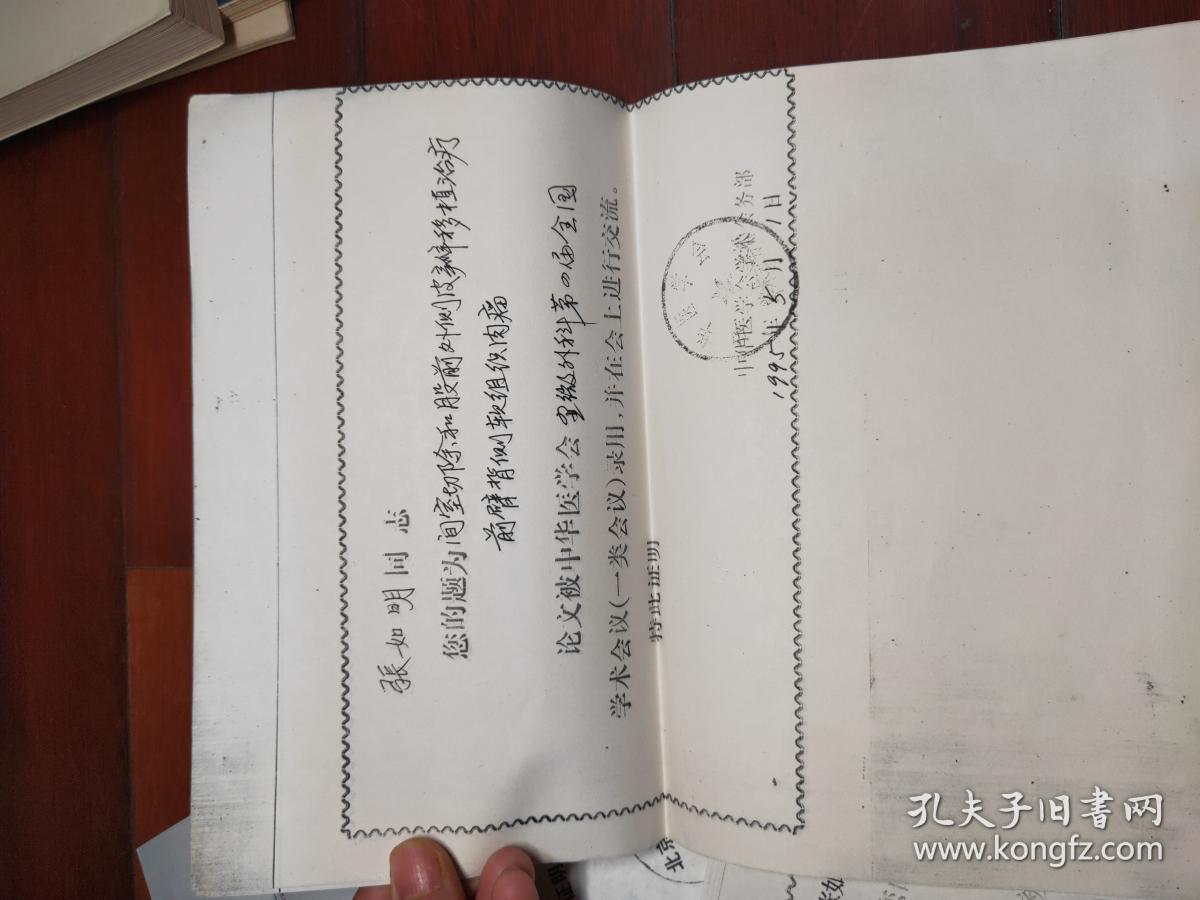 張如明同志
您的题为间室切除和股前外侧皮瓣移植治疗
前臂背侧软组织肉瘤
论文被中华医学会显微外科第四届全国
学术会议(一类会议)录用,并在会上进行交流。
特此证明
中华医学会学术会务部
1995年5月1日
孔夫子旧书网
www.kongfz.com